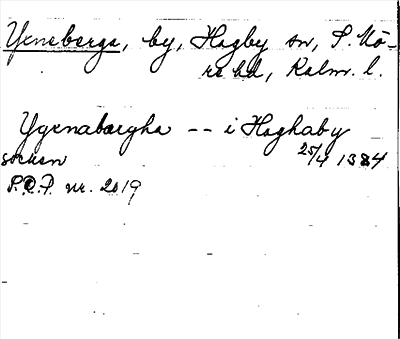 Yeneberga, by, Hagby sn, S. Mö-
re hd, Kalm. l.
Ygenabærgha -- i Haghaby
socken 25/4 1384
S.R.P. nr. 2019